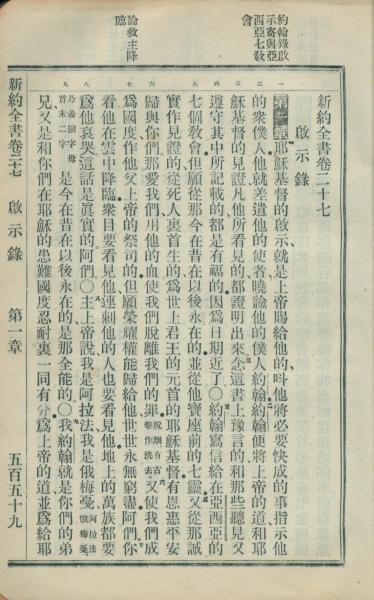 約翰錄啟
示寄與亞
西亞七教
會
論救主降
臨
新約全書卷二十七
啟示錄
第一章 耶穌基督的啟示、就是上帝賜給他的、叫他將必要快成的事指示他
的衆僕人他就差遣他的使者曉諭他的僕人約翰約翰便將上帝的道和耶
穌基督的見證、凡他所看見的、都證明出來念這書上豫言的和那些聽見又
遵守其中所記載的都是有福的因爲日期近了○約翰寫信給在亞西亞的
七個教會但願從那今在昔在以後永在的並從他寶座前的七靈又從那誠
實作見證的從死人裏首生的爲世上君王的元首的耶穌基督有恩惠平安
歸與你們那愛我們用他的血使我們脫離我們的罪脫離有古卷作洗去又使我們成
爲國度作他父上帝的祭司的但願榮耀權能歸給他世世永無窮盡阿們你
看他在雲中降臨衆目要看見他連刺他的人也要看見他地上的萬族都要
爲他哀哭這話是真實的阿們○主上帝說我是阿拉法我是俄梅戞阿拉法俄梅戞
乃希臘字母首末二字是今在昔在以後永在的是那全能的○我約翰就是你們的弟
兄又是和你們在耶穌的患難國度忍耐裏一同有分爲上帝的道並爲給耶
新約全書卷二十七 啟示錄 第一章 五百五十九
一
二
三
四
五
六
七
八
九